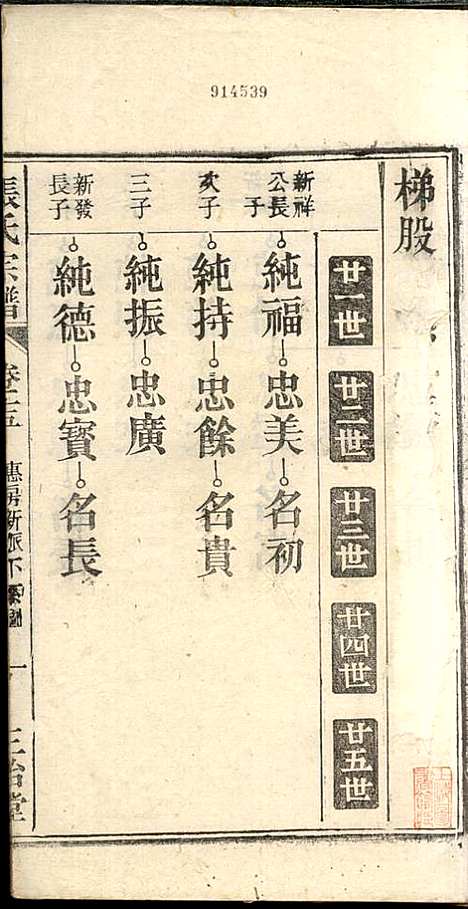 914539
梯股
廿一世 廿二世 廿三世 廿四世 廿五世
新祥公長子 純福 忠美 名初
次子 純持 忠餘 名貴
三子 純振 忠廣
新發長子 純德 忠寶 名長
張氏宗譜 卷二五 惠房新派下 一 三治堂